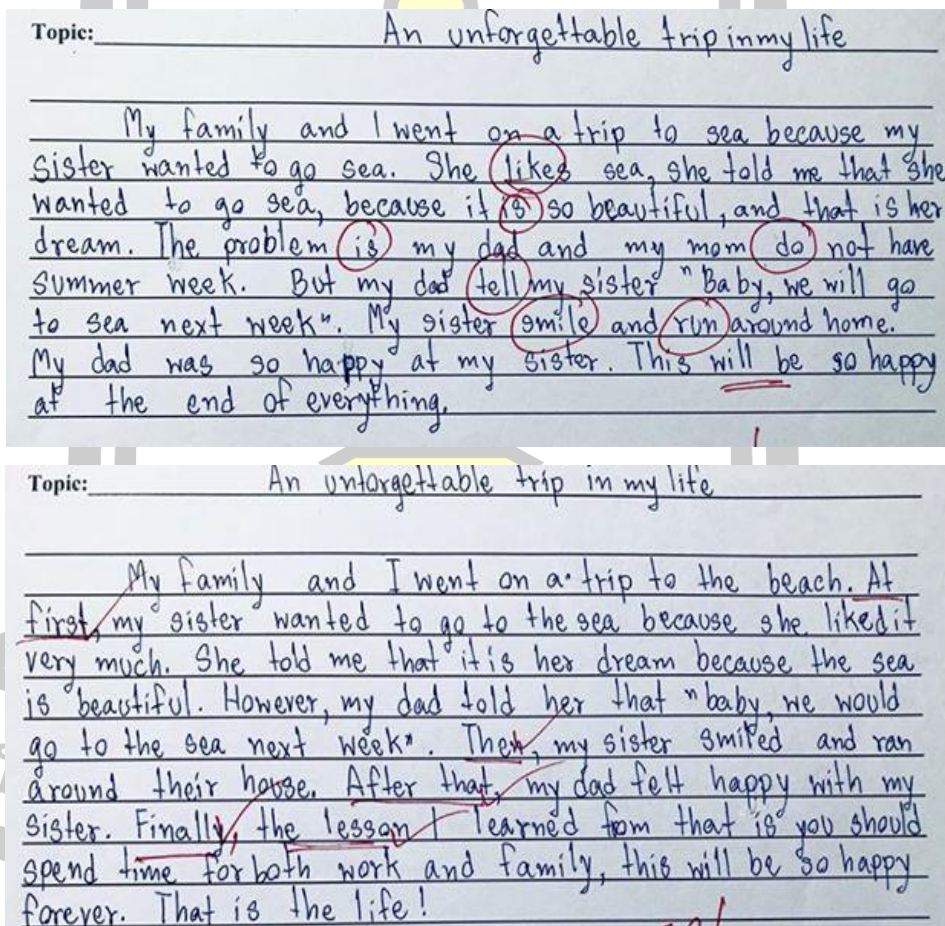 Topic: An unforgettable trip in my life
My family and I went on a trip to sea because my
sister wanted to go sea. She likes sea, she told me that she
wanted to go sea, because it is so beautiful, and that is her
dream. The problem is my dad and my mom do not have
summer week. But my dad tell my sister "Baby, we will go
to sea next week". My sister smile and run around home.
My dad was so happy at my sister. This will be so happy
at the end of everything.
Topic: An unforgettable trip in my life
My family and I went on a trip to the beach. At
first, my sister wanted to go to the sea because she liked it
very much. She told me that it is her dream because the sea
is beautiful. However, my dad told her that "baby, we would
go to the sea next week". Then, my sister smiled and ran
around their house. After that, my dad felt happy with my
sister. Finally, the lesson I learned from that is you should
spend time for both work and family, this will be so happy
forever. That is the life!